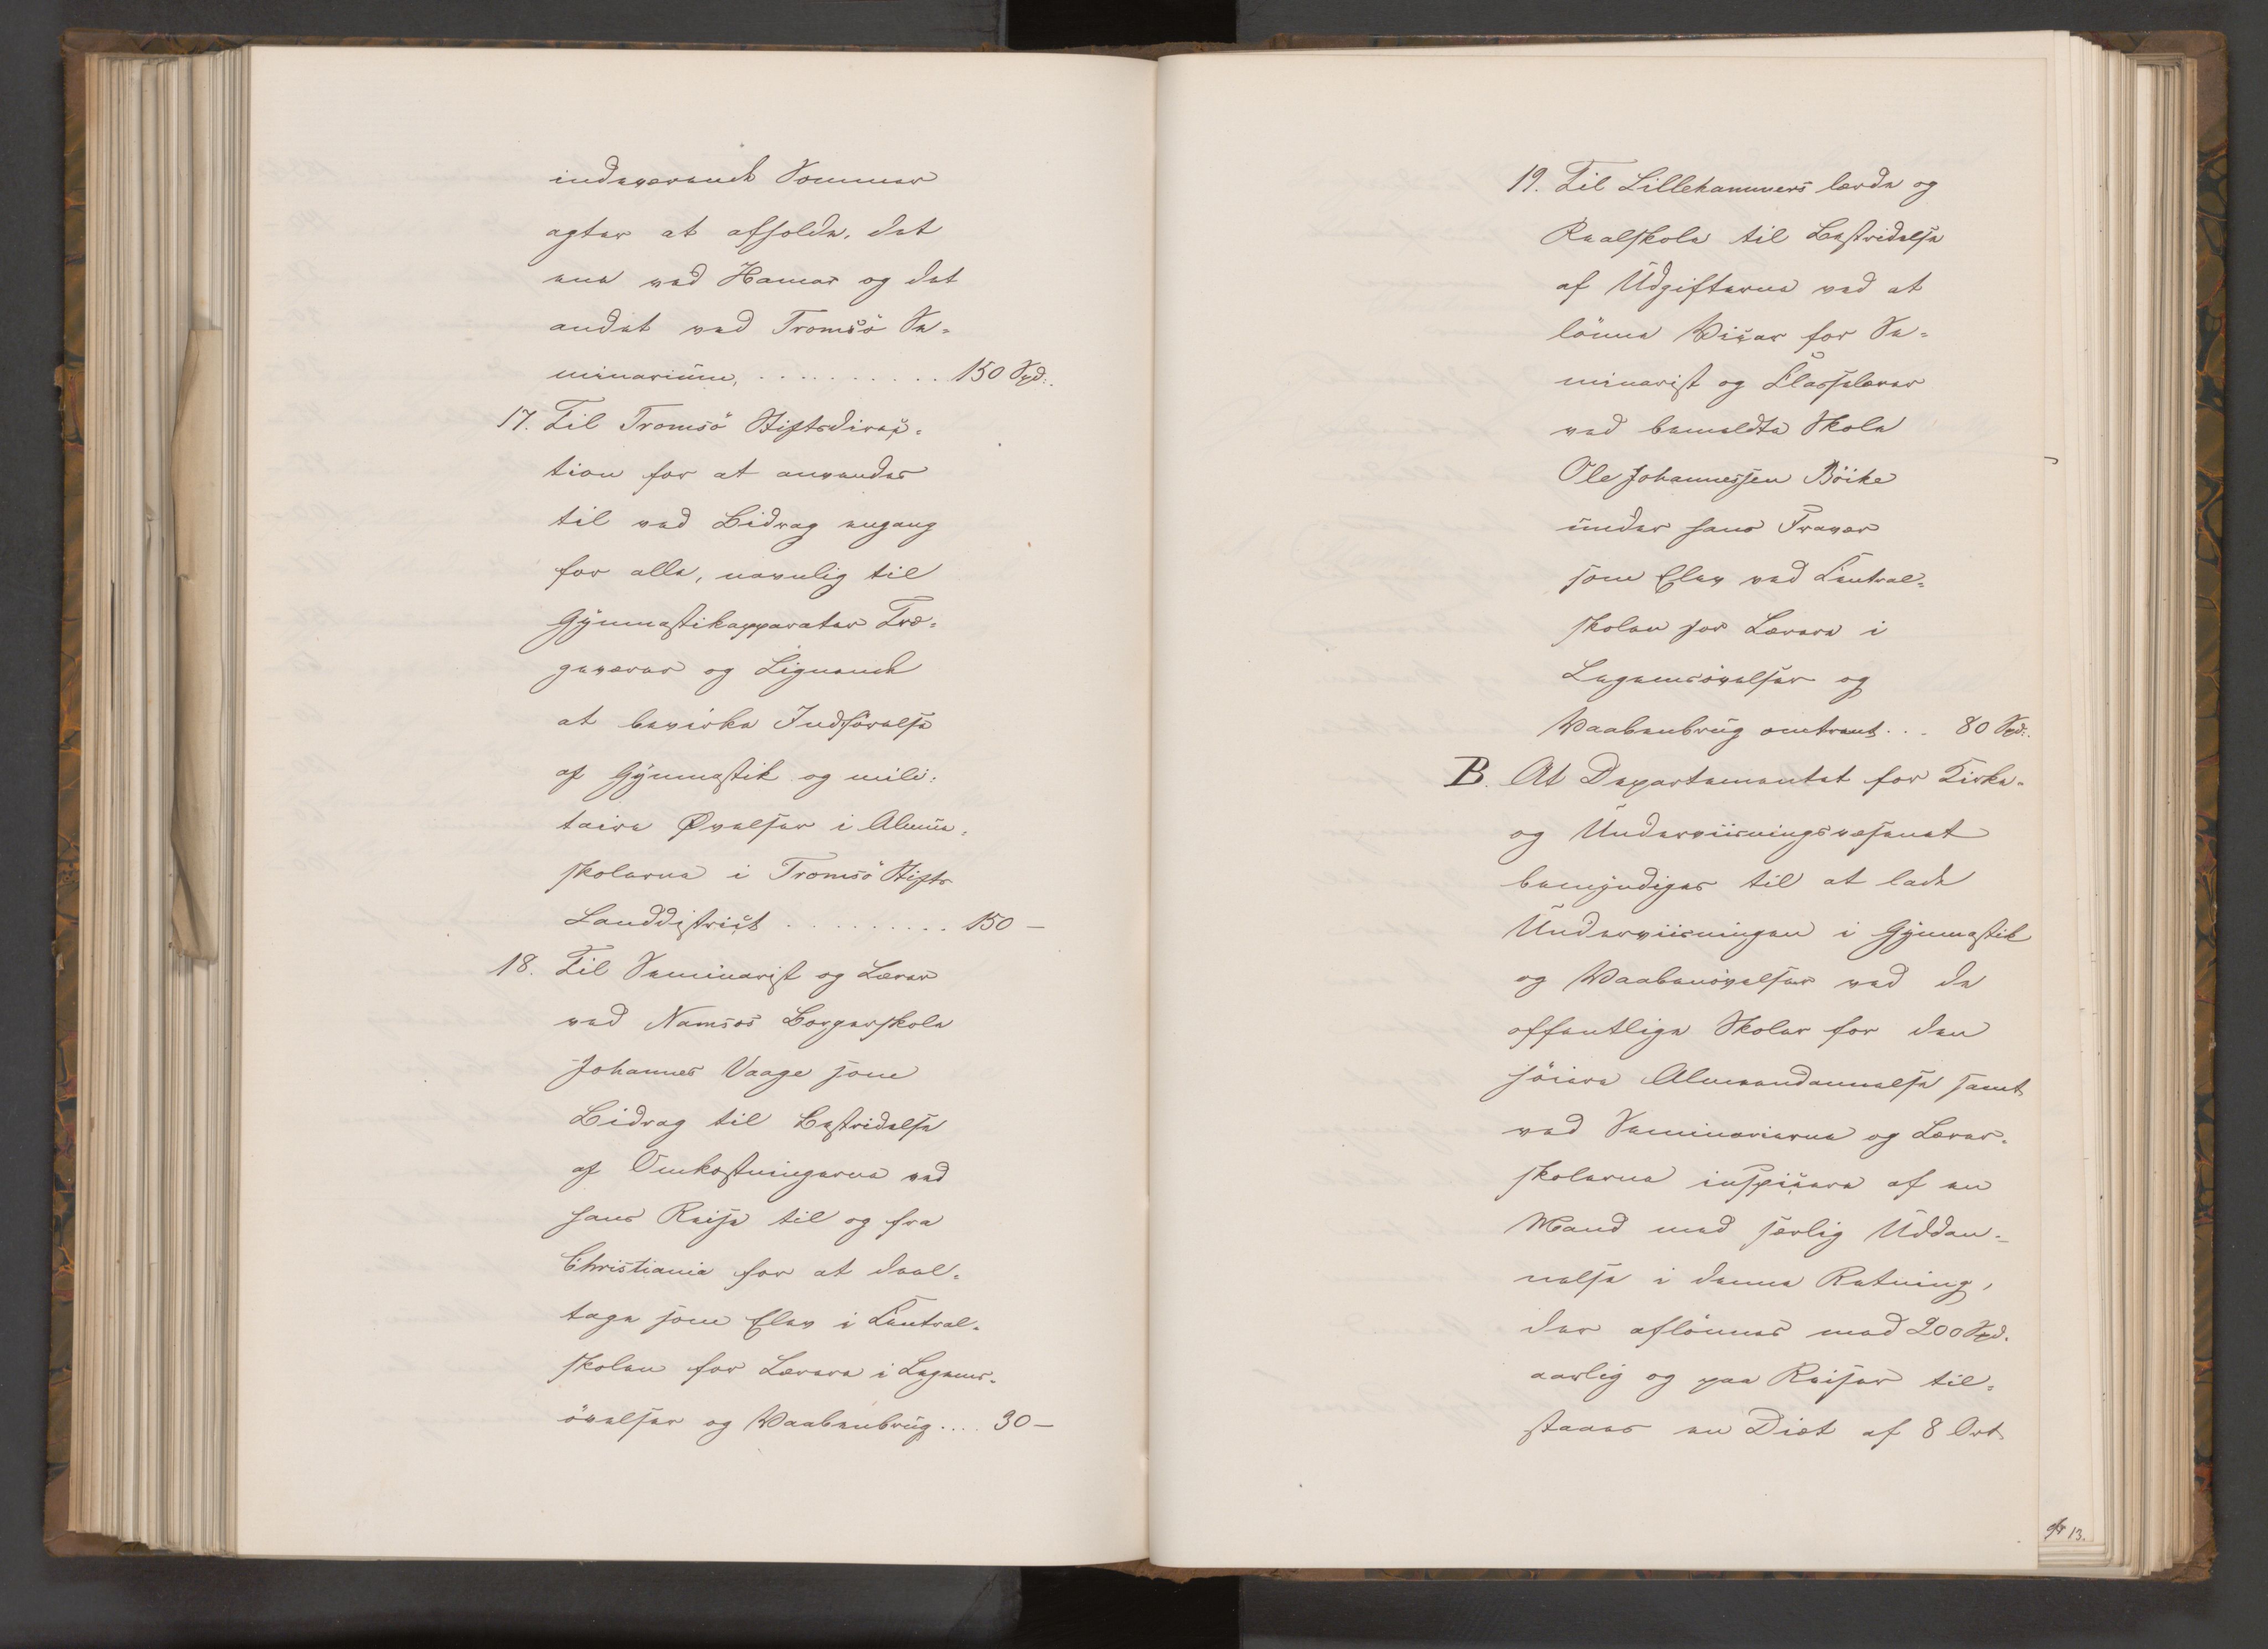 indeværende Sommer
agter at afholde, det
ene ved Hamar og det
andet ved Tromsö Se-
minarium, . . . . . . . . . . 150 Spd.
17. Til Tromsö Stiftsdirec-
tion for at anvendes
til ved Bidrag engang
for alle, navnlig til
Gymnastikapparater Træ-
geværer og Lignende
at bevirke Indförelse
af Gymnastik og mili-
taire Øvelser i Almue-
skolerne i Tromsö Stifts
Landdistrict . . . . . . . . . 150 —
18. Til Seminarist og Lærer
ved Namsos Borgerskole
Johannes Vaage som
Bidrag til Bestridelse
af Omkostningerne ved
hans Reise til og fra
Christiania for at deel-
tage som Elev i Central-
skolen for Lærere i Legems-
övelser og Vaabenbrug .... 30 —
19. Til Lillehammers lærde og
Realskole til Bestridelse
af Udgifterne ved at
lönne Vicar for Se-
minarist og Classelærer
ved bemeldte Skole
Ole Johannessen Böike
under hans Fravær
som Elev ved Central-
skolen for Lærere i
Legemsövelser og
Vaabenbrug omtrent . . . 80 Spd.
B. At Departementet for Kirke-
og Underviisningsvæsenet
bemyndiges til at lade
Underviisningen i Gymnastik
og Vaabenövelser ved de
offentlige Skoler for den
höiere Almeendannelse samt
ved Seminarierne og Lærer-
skolerne inspicere af en
Mand med særlig Uddan-
nelse i denne Retning,
der aflönnes med 200 Spd.
aarlig og paa Reiser til-
staaes en Diæt af 8 Ort
13.